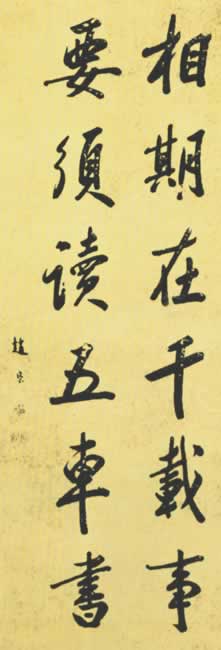 相期在千載事
要須讀五車書
趙